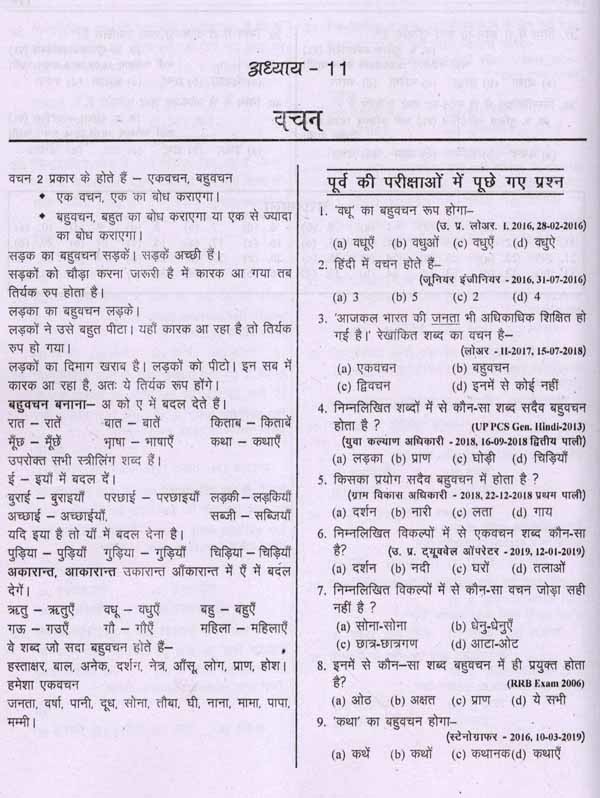 अध्याय - 11
वचन
वचन 2 प्रकार के होते हैं – एकवचन, बहुवचन
• एक वचन, एक का बोध कराएगा।
• बहुवचन, बहुत का बोध कराएगा या एक से ज्यादा
का बोध कराएगा।
सड़क का बहुवचन सड़कें। सड़कें अच्छी हैं।
सड़कों को चौड़ा करना जरूरी है में कारक आ गया तब
तिर्यक रुप होता है।
लड़का का बहुवचन लड़के।
लड़कों ने उसे बहुत पीटा। यहाँ कारक आ रहा है तो तिर्यक
रुप हो गया।
लड़कों का दिमाग खराब है। लड़कों को पीटो। इन सब में
कारक आ रहा है, अतः ये तिर्यक रूप होंगे।
बहुवचन बनाना– अ को ए में बदल देते हैं।
रात – रातें बात – बातें किताब – किताबें
मूँछ – मूँछें भाषा – भाषाएँ कथा – कथाएँ
उपरोक्त सभी स्त्रीलिंग शब्द हैं।
ई – इयाँ में बदल दें।
बुराई – बुराइयाँ परछाई – परछाइयाँ लड़की – लड़कियाँ
अच्छाई – अच्छाईयाँ. सब्जी – सब्जियाँ
यदि इया है तो याँ में बदल देना है।
पुड़िया – पुड़ियाँ गुड़िया – गुड़ियाँ चिड़िया – चिड़ियाँ
अकारान्त, आकारान्त उकारान्त औंकारान्त में एँ में बदल
देगें।
ऋतु – ऋतुएँ वधू – वधुएँ बहु – बहुएँ
गऊ – गउएँ गौ – गौएँ महिला – महिलाएँ
वे शब्द जो सदा बहुवचन होते हैं–
हस्ताक्षर, बाल, अनेक, दर्शन, नेत्र, आँसू, लोग, प्राण, होश।
हमेशा एकवचन
जनता, वर्षा, पानी, दूध, सोना, तौबा, घी, नाना, मामा, पापा,
मम्मी।
पूर्व की परीक्षाओं में पूछे गए प्रश्न
1. 'वधू' का बहुवचन रूप होगा–
(उ. प्र. लोअर. I. 2016, 28-02-2016)
(a) वधूएँ (b) वधुओं (c) वधुएँ (d) वधुऐ
2. हिंदी में वचन होते हैं–
(जूनियर इंजीनियर - 2016, 31-07-2016)
(a) 3 (b) 5 (c) 2 (d) 4
3. 'आजकल भारत की जनता भी अधिकाधिक शिक्षित हो
गई है।' रेखांकित शब्द का वचन है–
(लोअर - II-2017, 15-07-2018)
(a) एकवचन (b) बहुवचन
(c) द्विवचन (d) इनमें से कोई नहीं
4. निम्नलिखित शब्दों में से कौन-सा शब्द सदैव बहुवचन
होता है ? (UP PCS Gen. Hindi-2013)
(युवा कल्याण अधिकारी - 2018, 16-09-2018 द्वितीय पाली)
(a) लड़का (b) प्राण (c) घोड़ी (d) चिड़ियाँ
5. किसका प्रयोग सदैव बहुवचन में होता है ?
(ग्राम विकास अधिकारी - 2018, 22-12-2018 प्रथम पाली)
(a) दर्शन (b) नारी (c) लता (d) गाय
6. निम्नलिखित विकल्पों में से एकवचन शब्द कौन-सा
है? (उ. प्र. ट्यूववेल ऑपरेटर - 2019, 12-01-2019)
(a) दर्शन (b) नदी (c) घरों (d) तलाओं
7. निम्नलिखित विकल्पों में से कौन-सा वचन जोड़ा सही
नहीं है ?
(a) सोना-सोना (b) धेनु-धेनुएँ
(c) छात्र-छात्रगण (d) आटा-ओट
8. इनमें से कौन–सा शब्द बहुवचन में ही प्रयुक्त होता
है? (RRB Exam 2006)
(a) ओठ (b) अक्षत (c) प्राण (d) ये सभी
9. 'कथा' का बहुवचन होगा–
(स्टेनोग्राफर - 2016, 10-03-2019)
(a) कथें (b) कथों (c) कथानक (d) कथाएँ